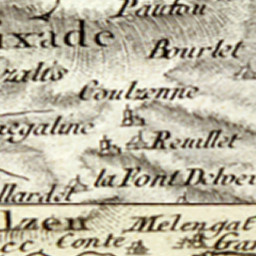 Pautou
ixade
Bourlet
zalis
Coulzenne
egaline
Reuillet
llardet
la Font Delvei
lzen
Melengat
cc Conte
Gar